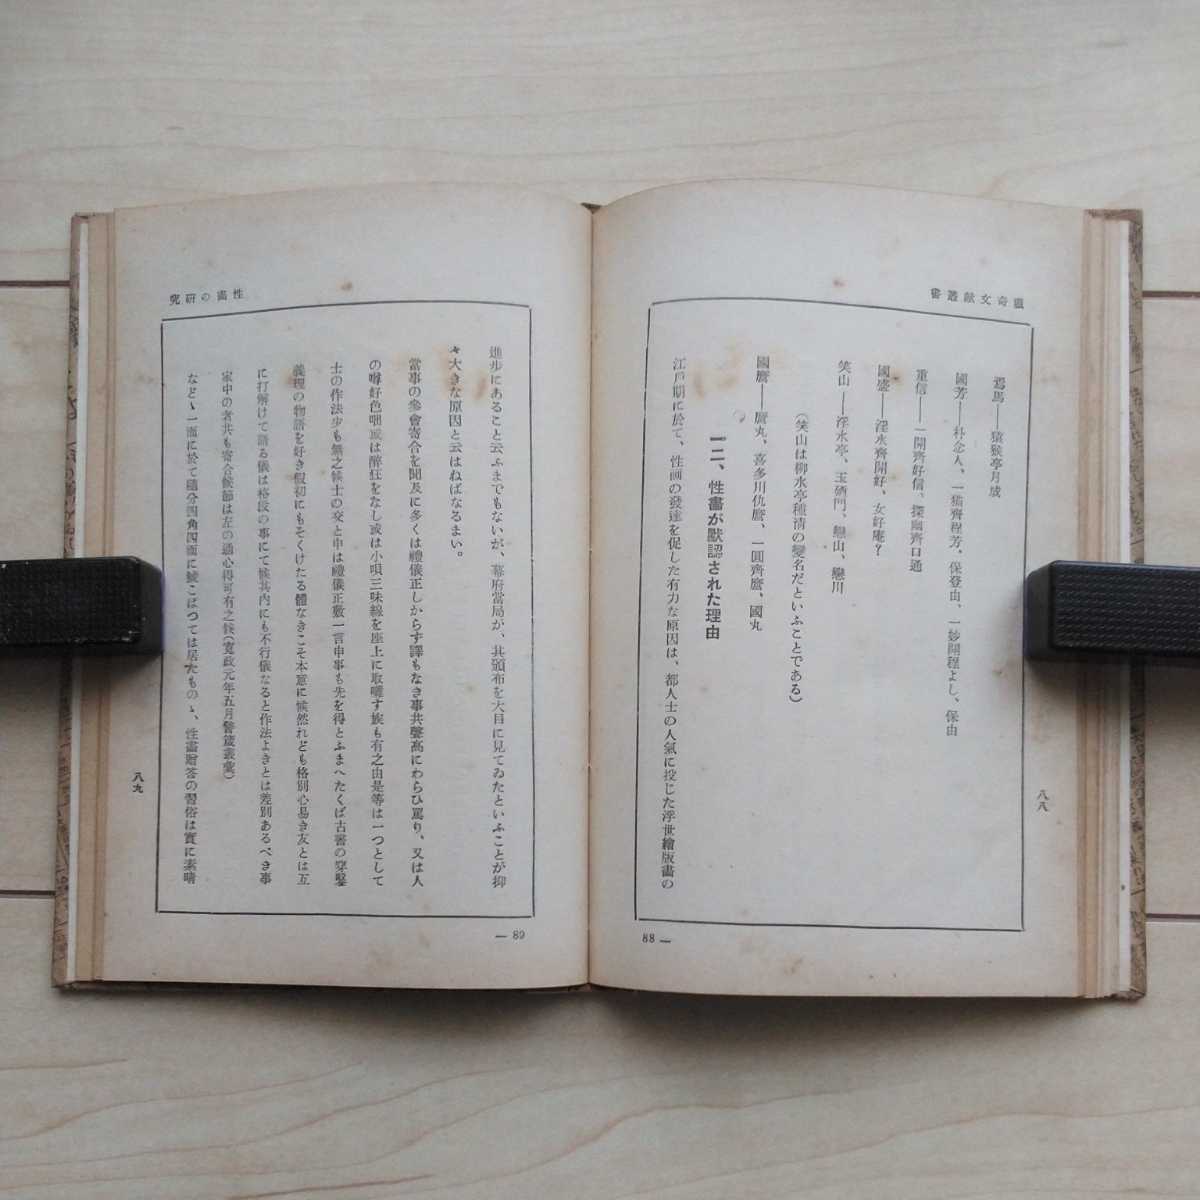 獵奇文献叢書
焉馬――猿猴亭月成
國芳――朴念人、一猫齊程芳、保登由、一妙開程よし、保由
重信――一開齊好信、探幽齊口通
國盛――淫水齊開好、女好庵?
笑山――淫水亭、玉硒門、戀山、戀川
(笑山は柳水亭種清の變名だといふことである)
國麿――麿丸、喜多川仇麿、一圓齊麿、國丸
一二、性畵が默認された理由
江戸期に於て、性画の發達を促した有力な原因は、都人士の人氣に投じた浮世繪版畵の
八八
88 —
性畵の研究
進歩にあること云ふまでもないが、幕府當局が、其頒布を大目に見てゐたといふことが抑
々大きな原因と云はねばなるまい。
當事の參會寄合を聞及に多くは禮儀正しからず譯もなき事共聲高にわらひ罵り、又は人
の噂好色咄或は醉狂をなし或は小唄三味線を座上に取囃す族も有之由是等は一つとして
士の作法歩も無之候士の交と申は禮儀正敷一言申事も先を得とふまへたくば古書の穿鑿
義理の物語を好き假初にもそくけたる體なきこそ本意に候然れども格別心易き友とは互
に打解けて語る儀は格段の事にて候其内にも不行儀なると作法よきとは差別あるべき事
家中の者共も寄合候節は左の通心得可有之候(寛政元年五月警箴叢彙)
などゝ一面に於て隨分四角四面に鯱こばつては居たものゝ、性畵贈答の習俗は實に素晴
八九
— 89